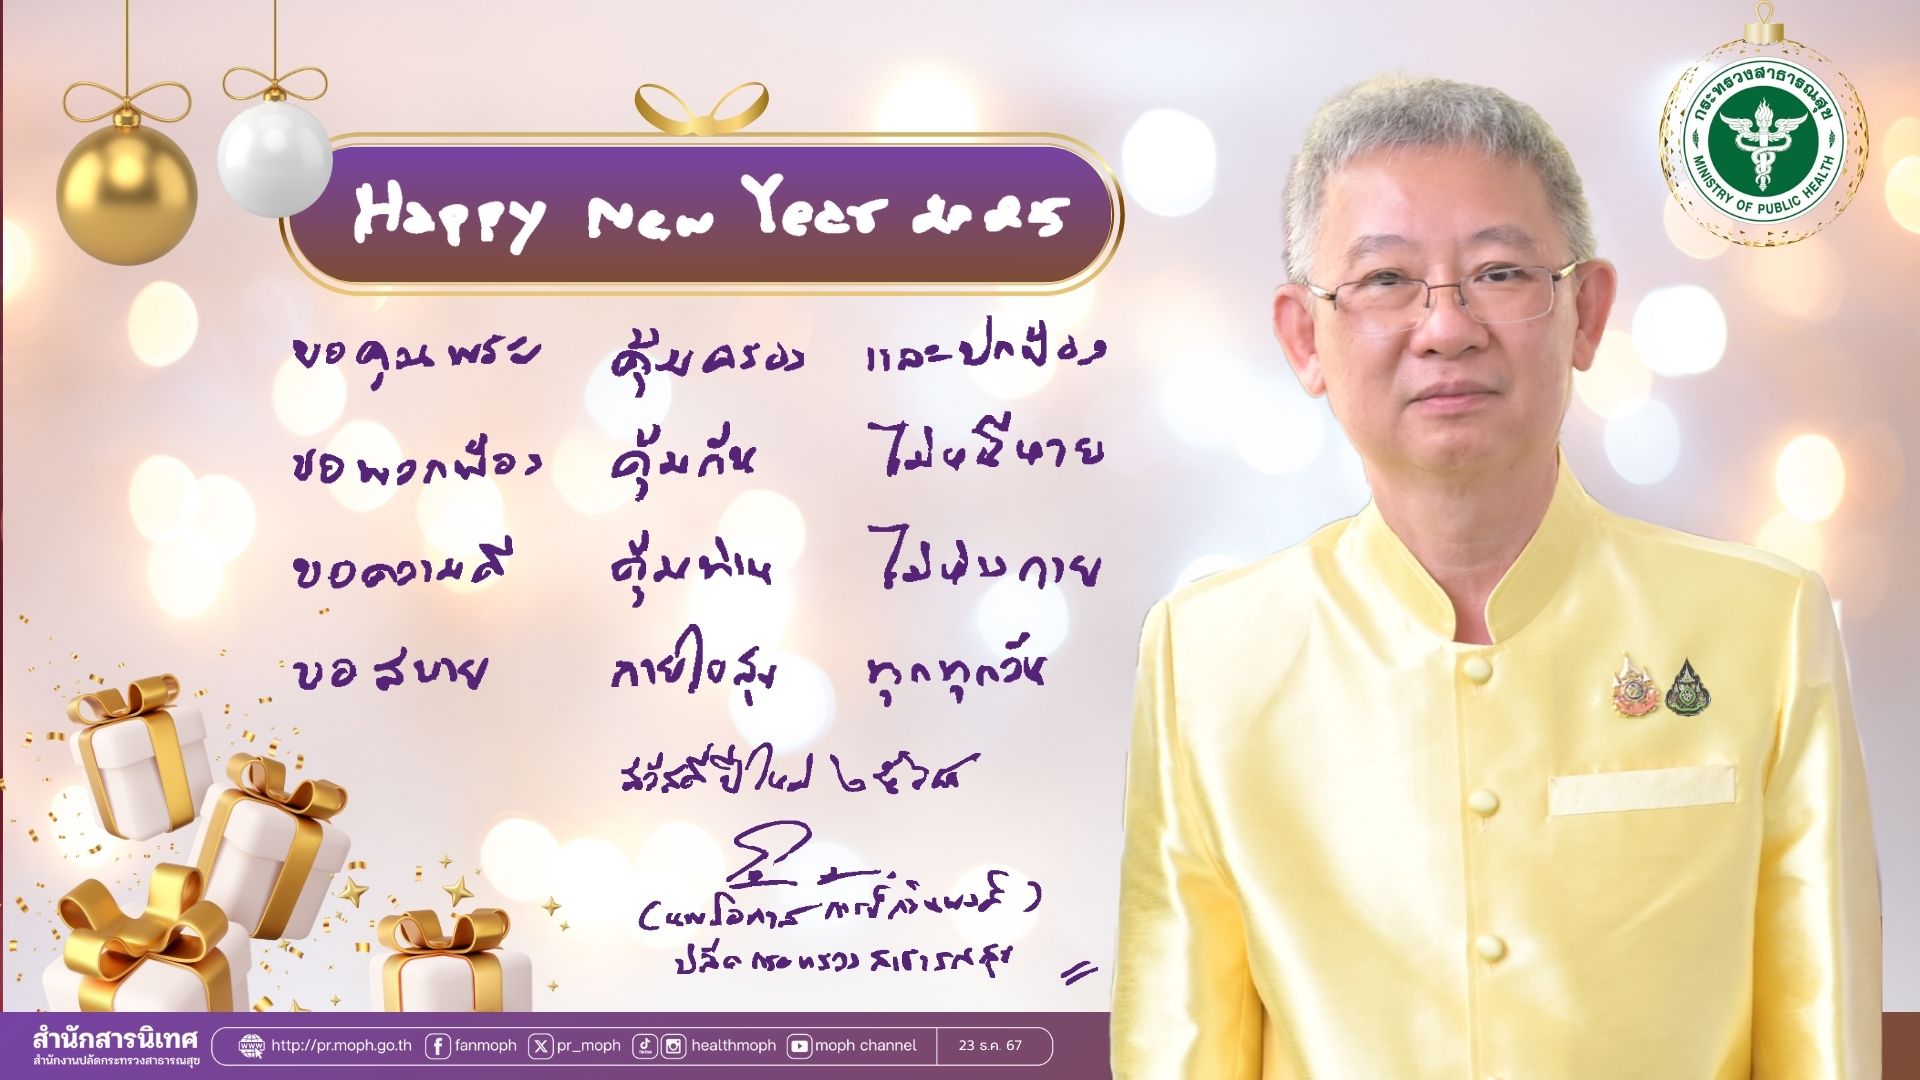 กระทรวงสาธารณสุข
MINISTRY OF PUBLIC HEALTH
Happy New Year 2025
ขอคุณพระ คุ้มครอง และปกป้อง
ขอพวกพ้อง คุ้มกัน ไม่หนีหาย
ขอความดี คุ้มท่าน ไม่ห่างกาย
ขอสบาย กายใจสุข ทุกทุกวัน
สวัสดีปีใหม่ ๒๕๖๘
(นพ.โอภาส การย์กวินพงศ์)
ปลัดกระทรวงสาธารณสุข
สำนักสารนิเทศ
สำนักงานปลัดกระทรวงสาธารณสุข
www http://pr.moph.go.th fanmoph pr_moph TikTok healthmoph moph channel 23 ธ.ค. 67